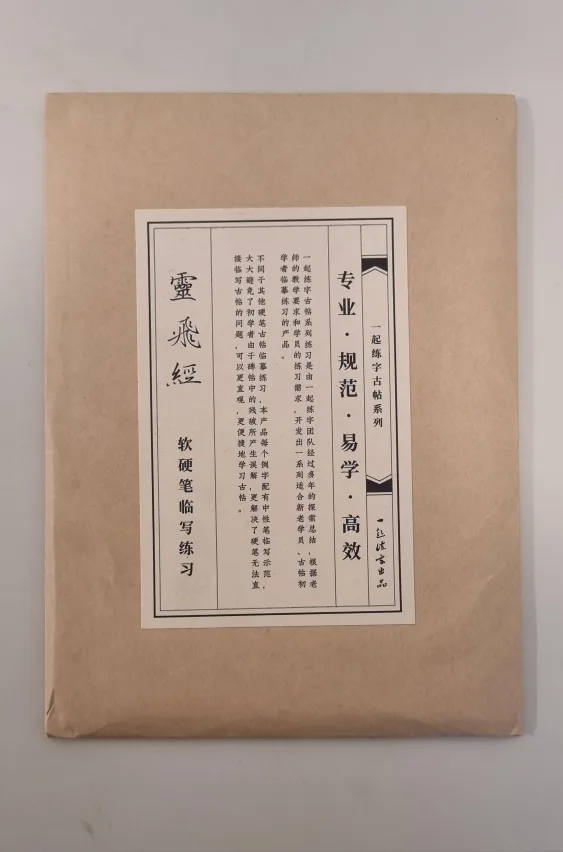 一起练字古帖系列
一起练字出品
专业·规范·易学·高效
一起练字古帖系列练习是由一起练字团队经过多年的探索总结，根据老
师的教学要求和学员的练习需求，开发出一系列适合新老学员、古帖初
学者临摹练习的产品。
不同于其他硬笔古帖临摹练习，本产品每个例字配有中性笔临写示范，
大大避免了初学者由于碑帖中的残破所产生误解，更解决了硬笔无法直
接临写古帖的问题，可以更直观、更便捷地学习古帖。
靈飛經
软硬笔临写练习